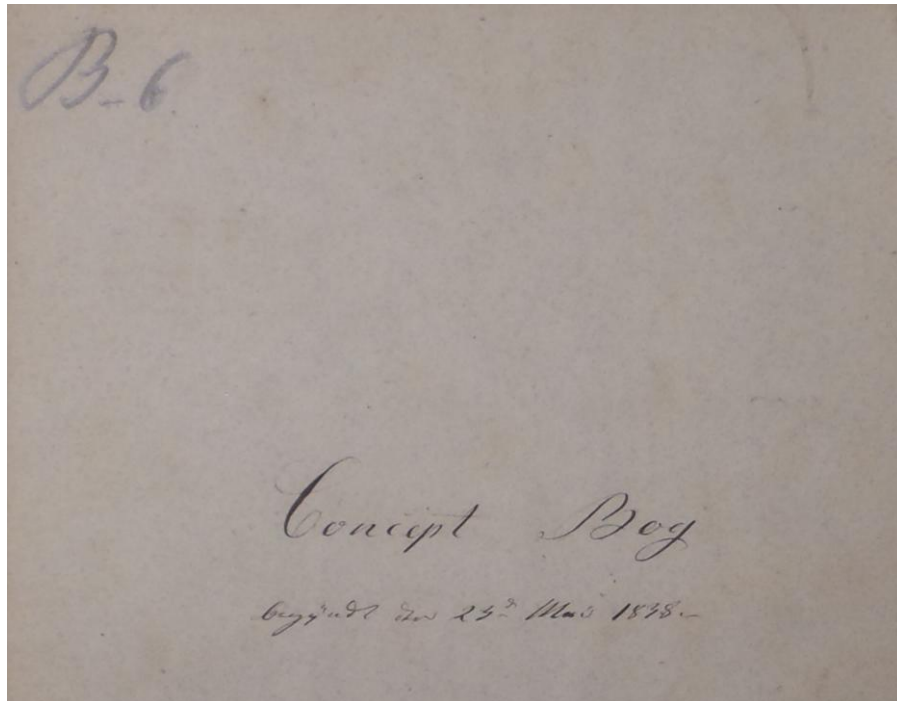 B-6.
Concept Bog
begyndt den 23d Mai 1838.